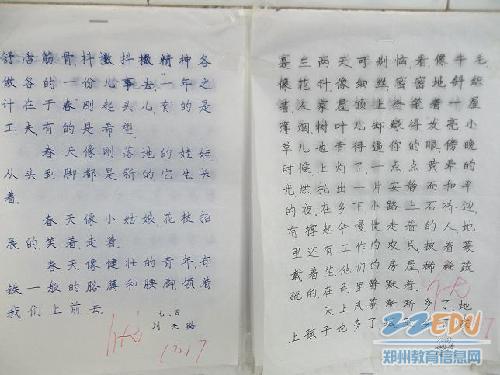 舒活筋骨抖擞抖擞精神各
做各的一份儿事去一年之
计在于春刚起头儿有的是
工夫有的是希望
春天像刚落地的娃娃
从头到脚都是新的它生长
着
春天像小姑娘花枝招
展的笑着走着
春天像健壮的青年有
铁一般的胳膊和腰脚领着
我们上前去
天两天可别恼看像牛毛
像花针像细丝密密地斜织
着人家屋顶上全笼着一层
薄烟树叶儿却绿得发亮小
草儿也青得逼你的眼傍晚
时候上灯了一点点黄晕的
光烘托出一片安静而和平
的夜在乡下小路上石桥边
有撑起伞慢慢走着的人地
里还有工作的农民披着蓑
戴着笠他们的房屋稀稀疏
疏的在雨里静默着
天上风筝渐渐多了地
上孩子也多了
ZZEDU
郑州教育信息网